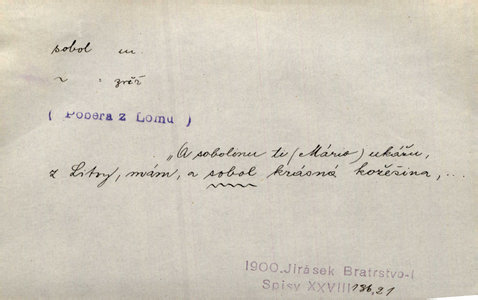 sobol m.
~ : zvíř
( Pobera z Lomu )
„A sobolinu ti (Mário) ukážu,
z Litvy, mám, a sobol krásná kožešina, ...
1900.Jirásek Bratrstvo-I
Spisy XXVIII 136,21